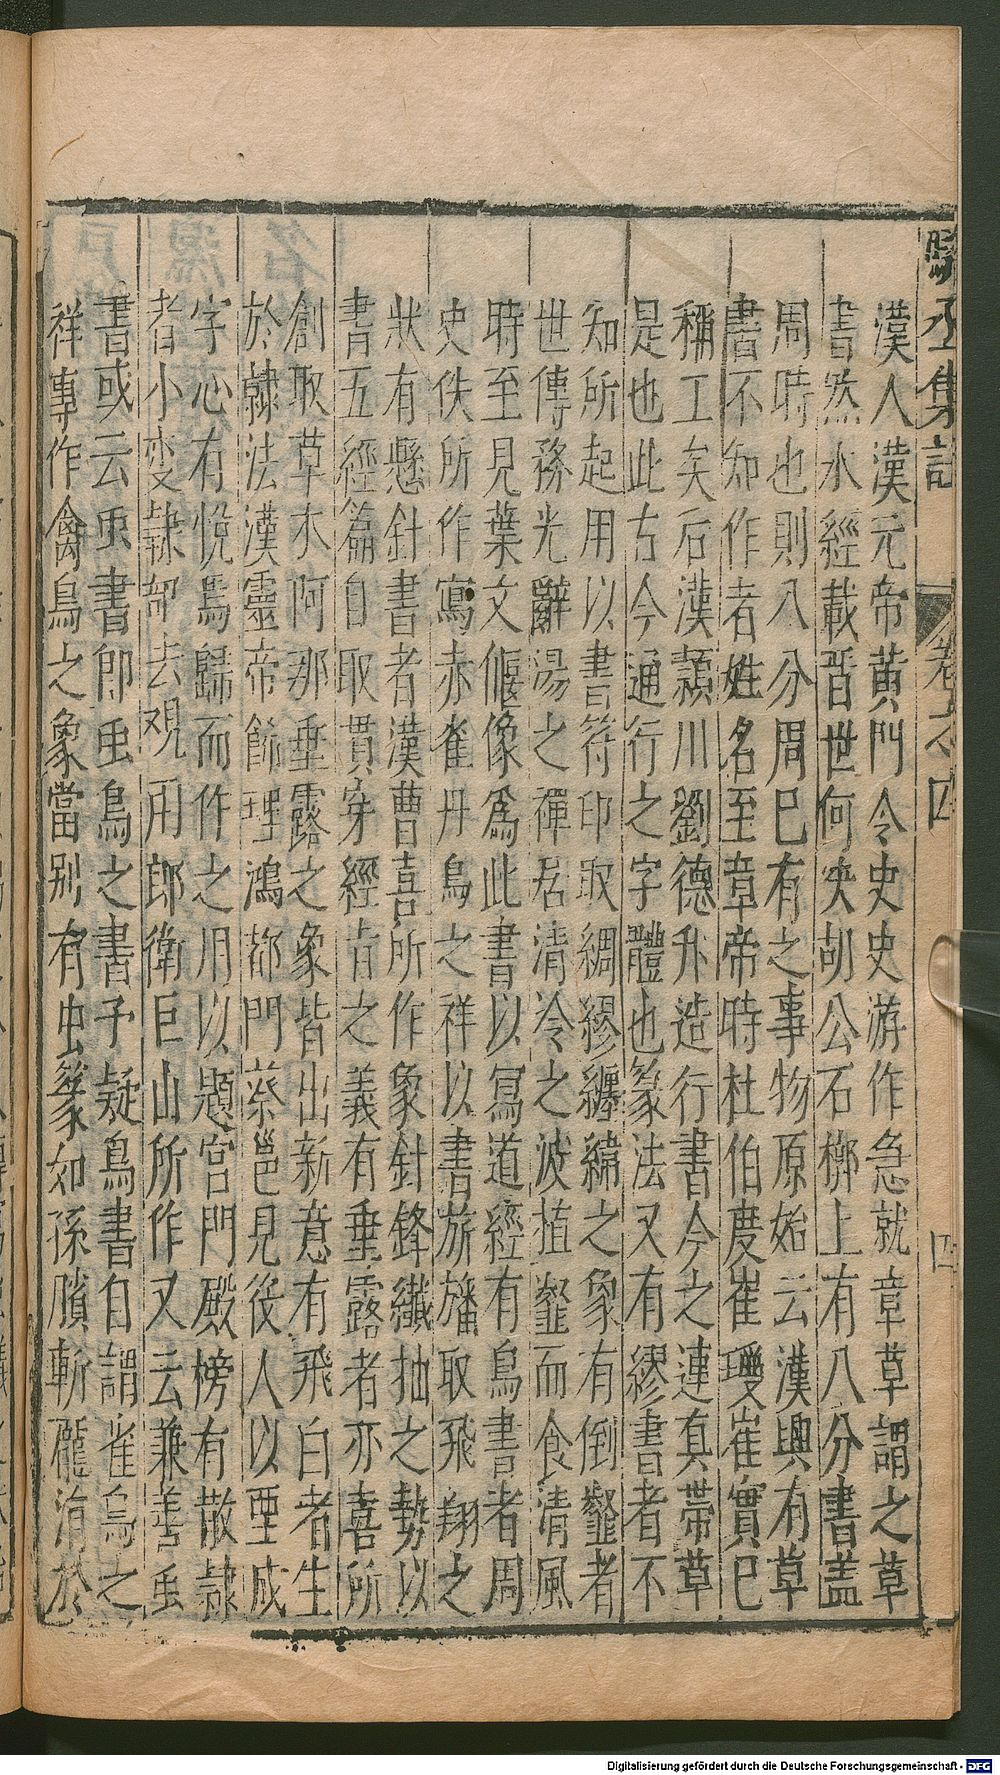 漢人漢元帝黄門令史史游作急就章草謂之草
書然水經載晋世何央胡公石槨上有八分書盖
周時也則八分周巳有之事物原始云漢興有草
書不知作者姓名至章帝時杜伯度崔瑗崔實巳
稱工矣后漢潁川劉德升造行書今之連真帶草
是也此古今通行之字體也篆法又有繆書者不
知所起用以書符印取綢繆纏綿之象有倒薤者
世傳務光辭湯之禪居清冷之波植薤而食清風
時至見葉文偃像為此書以寫道經有鳥書者周
史佚所作寫赤雀丹鳥之祥以書旂旛取飛翔之
狀有懸針書者漢曹喜所作象針鋒纖抽之勢以
書五經篇目取貫穿經肯之義有垂露者亦喜所
創取草木阿那垂露之象皆出新意有飛白者生
於隷法漢靈帝飾理鴻都門蔡邕見役人以堊成
字心有悅焉歸而作之用以題宫門殿榜有散隷
者小变隷部去覌用郎衛巨山所作又云兼善䖝
書或云䖝書即䖝鳥之書予疑鳥書自謂雀鳥之
祥專作禽鳥之象當别有虫篆如孫臏斬龐涓於
丞集記
卷之四
四
Digitalisierung gefördert durch die Deutsche Forschungsgemeinschaft - DFG